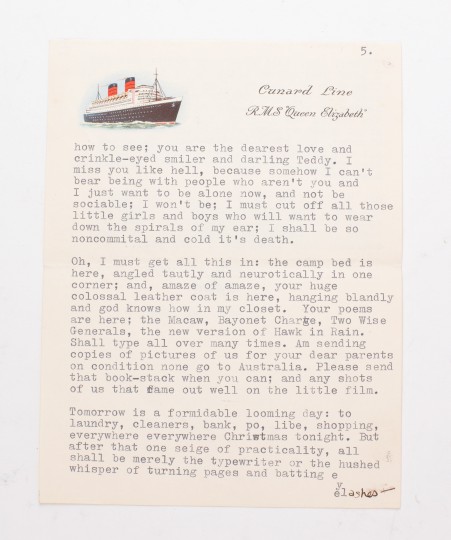 5.
Cunard Line
R.M.S "Queen Elizabeth"
how to see; you are the dearest love and
crinkle-eyed smiler and darling Teddy. I
miss you like hell, because somehow I can't
bear being with people who aren't you and
I just want to be alone now, and not be
sociable; I won't be; I must cut off all those
little girls and boys who will want to wear
down the spirals of my ear; I shall be so
noncommital and cold it's death.
Oh, I must get all this in: the camp bed is
here, angled tautly and neurotically in one
corner; and, amaze of amaze, your huge
colossal leather coat is here, hanging blandly
and god knows how in my closet. Your poems
are here; the Macaw, Bayonet Charge, Two Wise
Generals, the new version of Hawk in Rain.
Shall type all over many times. Am sending
copies of pictures of us for your dear parents
on condition none go to Australia. Please send
that book-stack when you can; and any shots
of us that came out well on the little film.
Tomorrow is a formidable looming day: to
laundry, cleaners, bank, po, libe, shopping,
everywhere everywhere Chriwtmas tonight. But
after that one seige of practicality, all
shall be merely the typewriter or the hushed
whisper of turning pages and batting e
y
elashes—